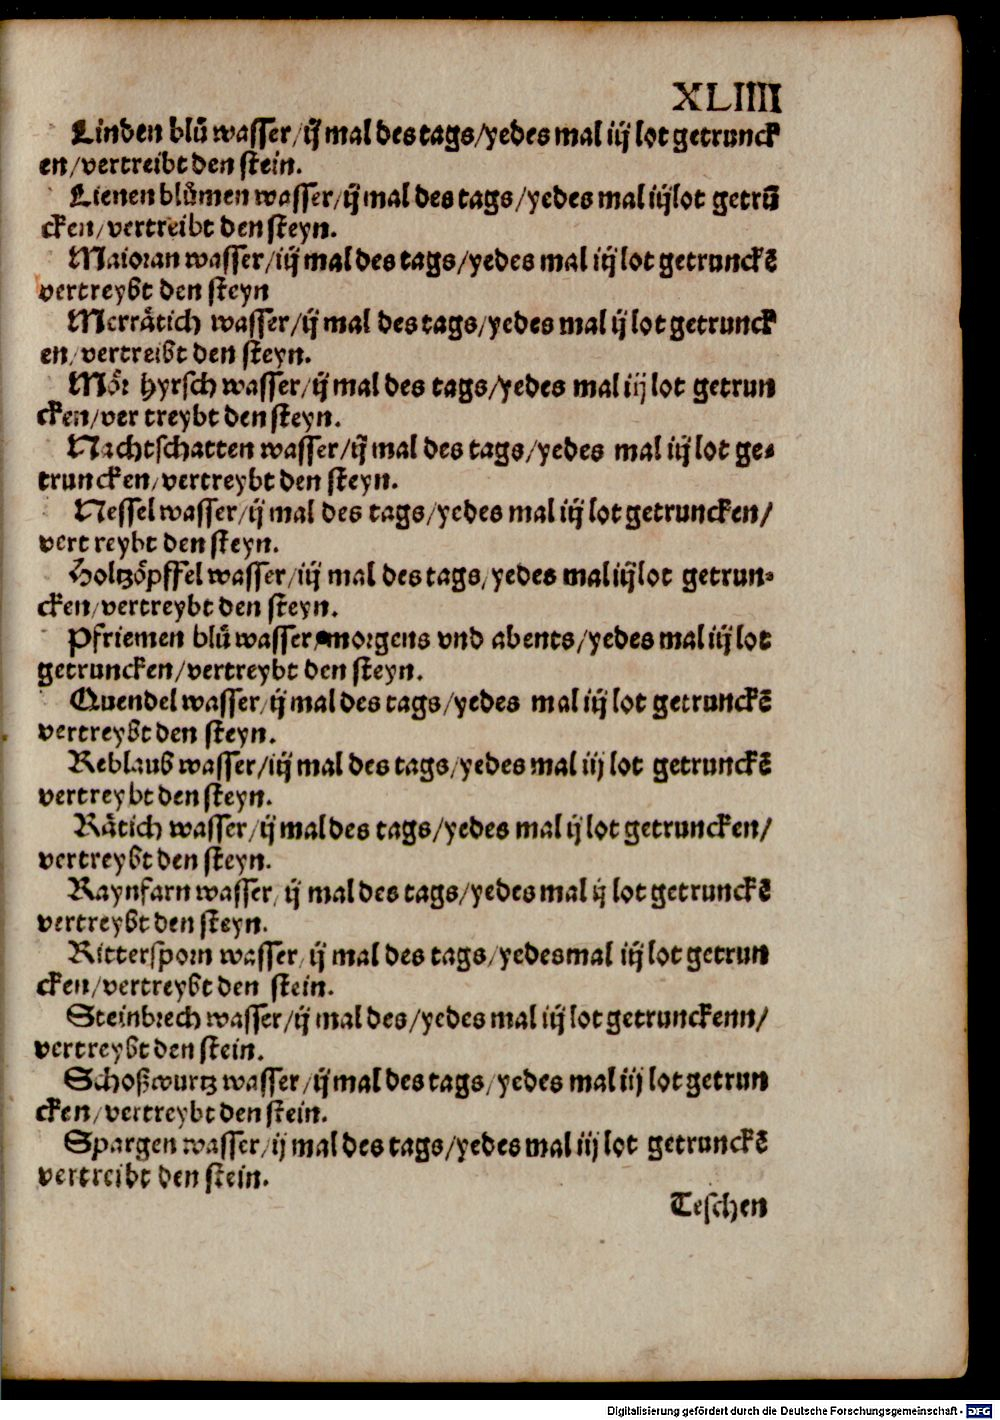 XLIIII
Linden blů wasser/ij mal des tags/yedes mal iij lot getrunck
en/vertreibt den stein.
Lienen blůmen wasser/ij mal des tags/yedes mal iij lot getrū
cken/vertreibt den steyn.
Maioran wasser/iij mal des tags/yedes mal iij lot getrunckē
vertreybt den steyn
Merråtich wasser/ij mal des tags/yedes mal ij lot getrunck
en/vertreibt den steyn.
Mör hyrsch wasser/ij mal des tags/yedes mal iij lot getrun
cken/ver treybt den steyn.
Nachtschatten wasser/ij mal des tags/yedes mal iij lot ge⸗
truncken/vertreybt den steyn.
Nessel wasser/ij mal des tags/yedes mal iij lot getruncken/
vert reybt den steyn.
Holtzöpffel wasser/iij mal des tags/yedes mal iij lot getrun⸗
cken/vertreybt den steyn.
Pfriemen blů wasser/morgens vnd abents/yedes mal iij lot
getruncken/vertreybt den steyn.
Quendel wasser/ij mal des tags/yedes mal iij lot getrunckē
vertreybt den steyn.
Reblaub wasser/iij mal des tags/yedes mal iij lot getrunckē
vertreybt den steyn.
Råtich wasser/ij mal des tags/yedes mal ij lot getruncken/
vertreybt den steyn.
Raynfarn wasser/ij mal des tags/yedes mal ij lot getrunckē
vertreybt den steyn.
Rittersporn wasser/ij mal des tags/yedesmal iij lot getrun
cken/vertreybt den stein.
Steinbrech wasser/ij mal des/yedes mal iij lot getrunckenn/
vertreybt den stein.
Schoßwurtz wasser/ij mal des tags/yedes mal iij lot getrun
cken/vertreybt den stein.
Spargen wasser/ij mal des tags/yedes mal iij lot getrunckē
vertreibt den stein.
Teschen
Digitalisierung gefördert durch die Deutsche Forschungsgemeinschaft - DFG